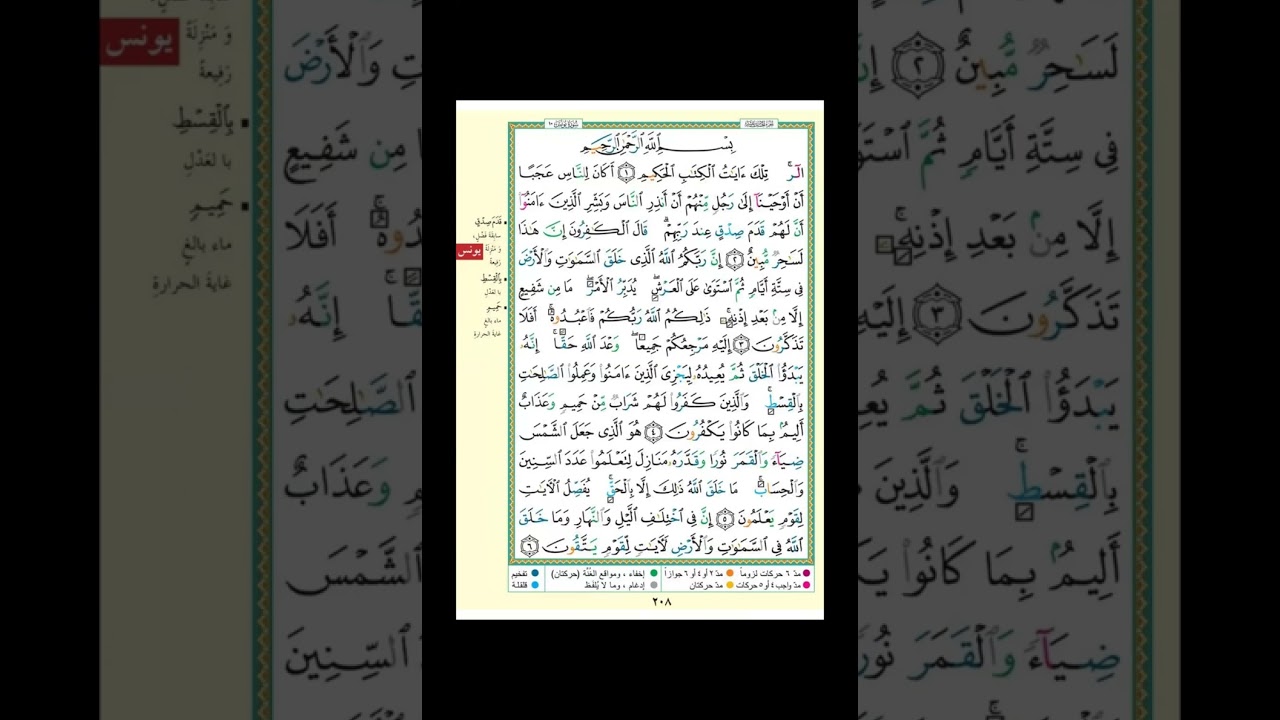 سُورَةُ يُونُسَ ١٠
بِسْمِ ٱللَّهِ ٱلرَّحْمَٰنِ ٱلرَّحِيمِ
الٓر ۚ تِلْكَ ءَايَٰتُ ٱلْكِتَٰبِ ٱلْحَكِيمِ ١ أَكَانَ لِلنَّاسِ عَجَبًا
أَنْ أَوْحَيْنَآ إِلَىٰ رَجُلٍ مِّنْهُمْ أَنْ أَنذِرِ ٱلنَّاسَ وَبَشِّرِ ٱلَّذِينَ ءَامَنُوٓا۟
أَنَّ لَهُمْ قَدَمَ صِدْقٍ عِندَ رَبِّهِمْ ۗ قَالَ ٱلْكَٰفِرُونَ إِنَّ هَٰذَا
لَسَٰحِرٌ مُّبِينٌ ٢ إِنَّ رَبَّكُمُ ٱللَّهُ ٱلَّذِى خَلَقَ ٱلسَّمَٰوَٰتِ وَٱلْأَرْضَ
فِى سِتَّةِ أَيَّامٍ ثُمَّ ٱسْتَوَىٰ عَلَى ٱلْعَرْشِ ۖ يُدَبِّرُ ٱلْأَمْرَ ۖ مَا مِن شَفِيعٍ
إِلَّا مِنۢ بَعْدِ إِذْنِهِۦ ۚ ذَٰلِكُمُ ٱللَّهُ رَبُّكُمْ فَٱعْبُدُوهُ ۚ أَفَلَا
تَذَكَّرُونَ ٣ إِلَيْهِ مَرْجِعُكُمْ جَمِيعًا ۖ وَعْدَ ٱللَّهِ حَقًّا ۚ إِنَّهُۥ
يَبْدَؤُا۟ ٱلْخَلْقَ ثُمَّ يُعِيدُهُۥ لِيَجْزِىَ ٱلَّذِينَ ءَامَنُوا۟ وَعَمِلُوا۟ ٱلصَّٰلِحَٰتِ
بِٱلْقِسْطِ ۚ وَٱلَّذِينَ كَفَرُوا۟ لَهُمْ شَرَابٌ مِّنْ حَمِيمٍ وَعَذَابٌ
أَلِيمٌۢ بِمَا كَانُوا۟ يَكْفُرُونَ ٤ هُوَ ٱلَّذِى جَعَلَ ٱلشَّمْسَ
ضِيَآءً وَٱلْقَمَرَ نُورًا وَقَدَّرَهُۥ مَنَازِلَ لِتَعْلَمُوا۟ عَدَدَ ٱلسِّنِينَ
وَٱلْحِسَابَ ۚ مَا خَلَقَ ٱللَّهُ ذَٰلِكَ إِلَّا بِٱلْحَقِّ ۚ يُفَصِّلُ ٱلْءَايَٰتِ
لِقَوْمٍ يَعْلَمُونَ ٥ إِنَّ فِى ٱخْتِلَٰفِ ٱلَّيْلِ وَٱلنَّهَارِ وَمَا خَلَقَ
ٱللَّهُ فِى ٱلسَّمَٰوَٰتِ وَٱلْأَرْضِ لَءَايَٰتٍ لِّقَوْمٍ يَتَّقُونَ ٦
قَدَمَ صِدْقٍ
سابقة فضل،
وَ مَنْزِلَةً
رَفِيعةً
يونس
بِٱلْقِسْطِ
با لعَدْلِ
حَمِيمٍ
ماء بالغِ
غايةَ الحرارةِ
مدّ ٦ حركات لزوماً مدّ ٢ أو ٤ أو ٦ جوازاً إخفاء ، ومواقع الغُنَّة (حركتان) تفخيم
مدّ واجب ٤ أو ٥ حركات مدّ حركتان إدغام ، وما لا يُلفَظ قلقلة
٢٠٨